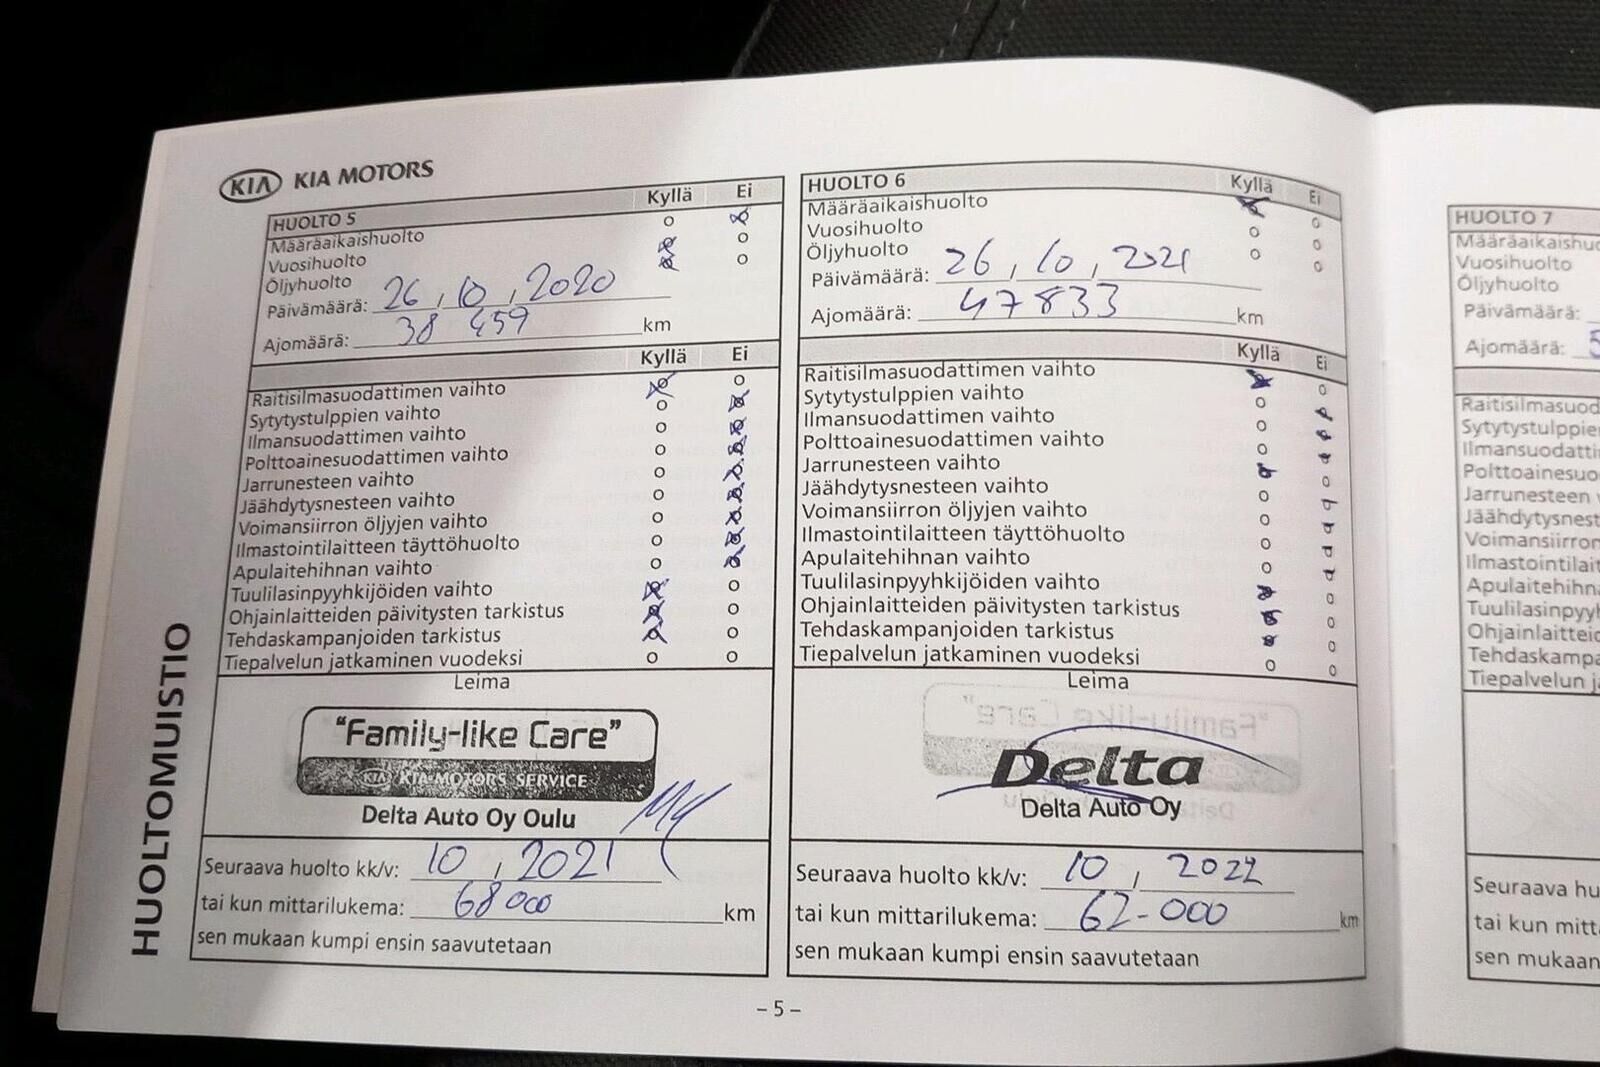 KIA KIA MOTORS
HUOLTOMUISTIO
Kyllä Ei
HUOLTO 5
Määräaikaishuolto
Vuosihuolto
Öljyhuolto
Päivämäärä: 26, 10, 2020
Ajomäärä: 38 459 km
Kyllä Ei
Raitisilmasuodattimen vaihto
Sytytystulppien vaihto
Ilmansuodattimen vaihto
Polttoainesuodattimen vaihto
Jarrunesteen vaihto
Jäähdytysnesteen vaihto
Voimansiirron öljyjen vaihto
Ilmastointilaitteen täyttöhuolto
Apulaitehihnan vaihto
Tuulilasinpyyhkijöiden vaihto
Ohjainlaitteiden päivitysten tarkistus
Tehdaskampanjoiden tarkistus
Tiepalvelun jatkaminen vuodeksi
Leima
"Family-like Care"
KIA KIA MOTORS SERVICE
Delta Auto Oy Oulu
Seuraava huolto kk/v: 10, 2021
tai kun mittarilukema: 68 000 km
sen mukaan kumpi ensin saavutetaan
HUOLTO 6 Kyllä Ei
Määräaikaishuolto
Vuosihuolto
Öljyhuolto
Päivämäärä: 26, 10, 2021
Ajomäärä: 47833 km
Kyllä Ei
Raitisilmasuodattimen vaihto
Sytytystulppien vaihto
Ilmansuodattimen vaihto
Polttoainesuodattimen vaihto
Jarrunesteen vaihto
Jäähdytysnesteen vaihto
Voimansiirron öljyjen vaihto
Ilmastointilaitteen täyttöhuolto
Apulaitehihnan vaihto
Tuulilasinpyyhkijöiden vaihto
Ohjainlaitteiden päivitysten tarkistus
Tehdaskampanjoiden tarkistus
Tiepalvelun jatkaminen vuodeksi
Leima
Delta
Delta Auto Oy
Seuraava huolto kk/v: 10, 2022
tai kun mittarilukema: 62-000 km
sen mukaan kumpi ensin saavutetaan
- 5 -
HUOLTO 7
Määräaikaishuo
Vuosihuolto
Öljyhuolto
Päivämäärä:
Ajomäärä: 5
Raitisilmasuod
Sytytystulppie
Ilmansuodatti
Polttoainesuo
Jarrunesteen
Jäähdytysnest
Voimansiirron
Ilmastointilait
Apulaitehihn
Tuulilasinpyyh
Ohjainlaitteid
Tehdaskampa
Tiepalvelun ja
Seuraava hu
tai kun mitt
sen mukaan